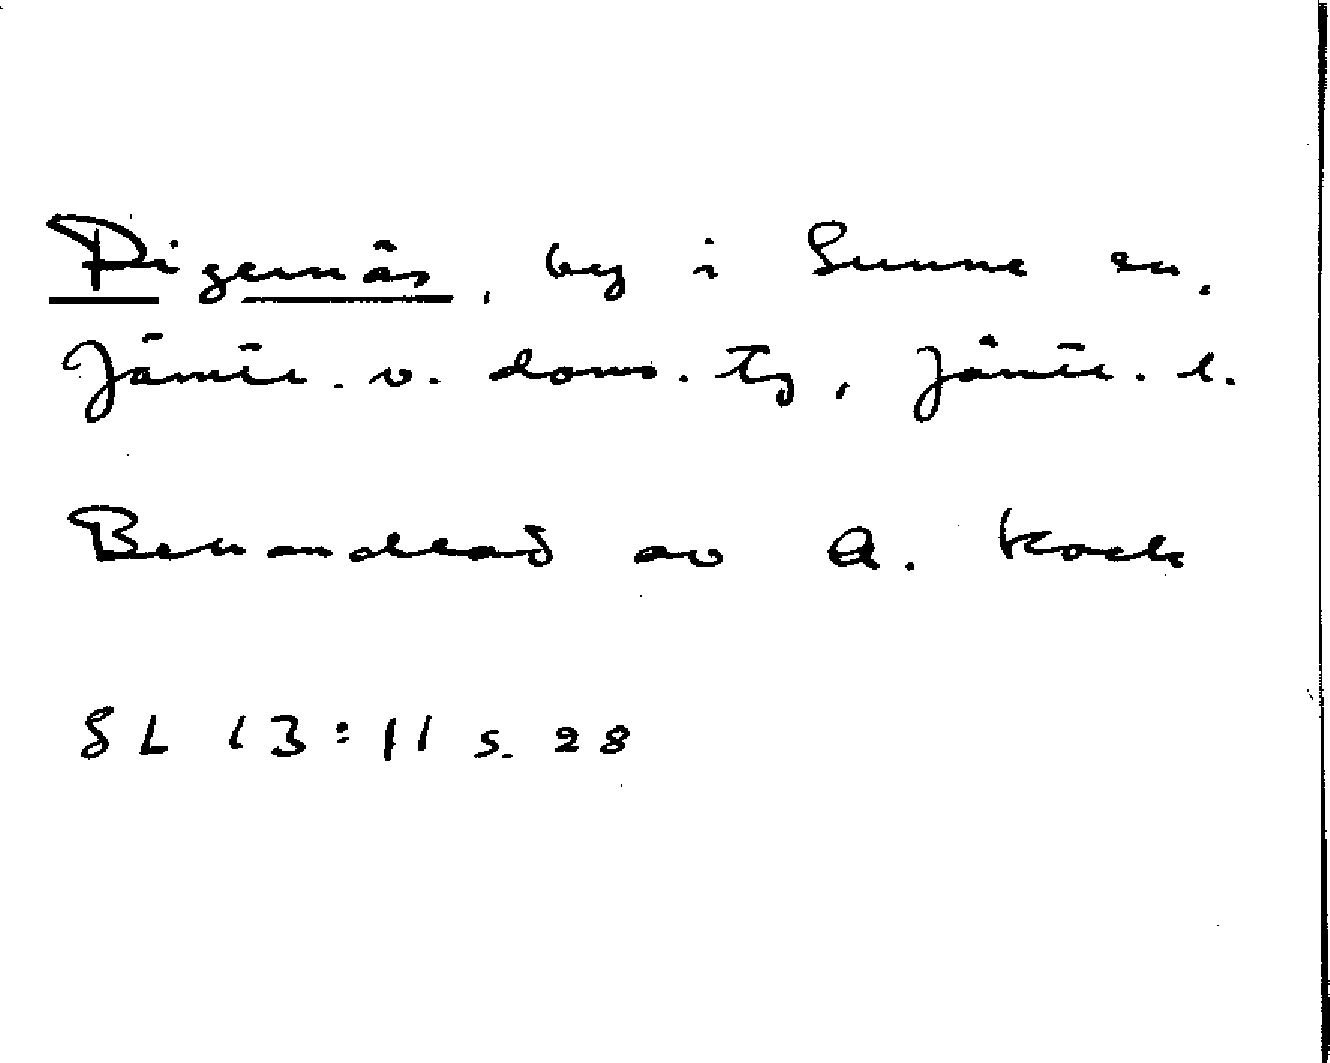 Digernäs, by i Sunne sn.
Jämtl. v. doms. tg, Jämtl. l.
Behandlad av A. Kock
SL 13:11 s. 28